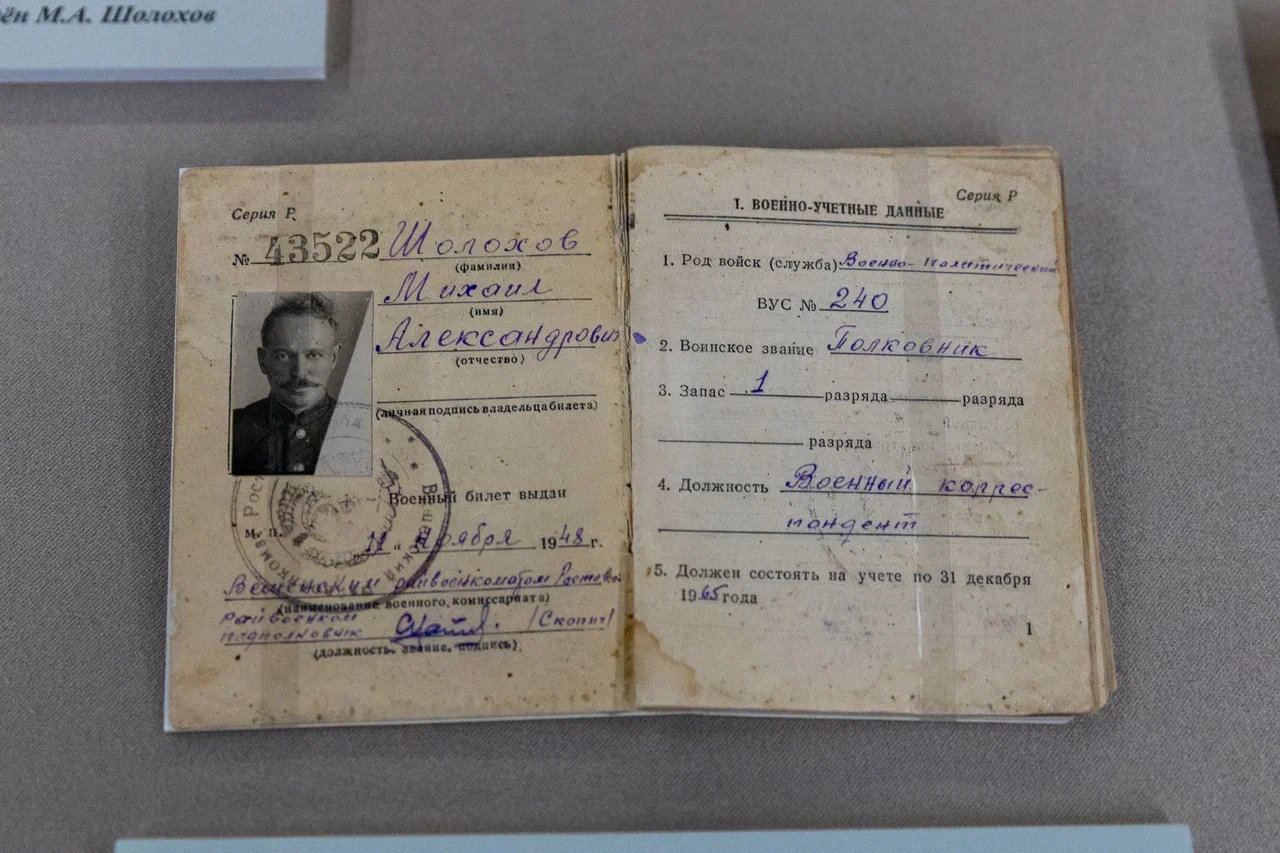 ён М.А. Шолохов
Серия Р.
№ 43522 Шолохов
(фамилия)
Михаил
(имя)
Александрович
(отчество)
(личная подпись владельца билета)
Военный билет выдан
М. П.
„11“ Ноября 1948 г.
Вешенским райвоенкоматом Ростовск
(наименование военного комиссариата)
Райвоенком
подполковник /Скопич/
(должность, звание, подпись)
Серия Р
I. ВОЕННО-УЧЕТНЫЕ ДАННЫЕ
1. Род войск (служба) Военно-политический
ВУС № 240
2. Воинское звание Полковник
3. Запас 1 разряда разряда
разряда
4. Должность Военный коррес-
пондент
5. Должен состоять на учете по 31 декабря
1965 года
1